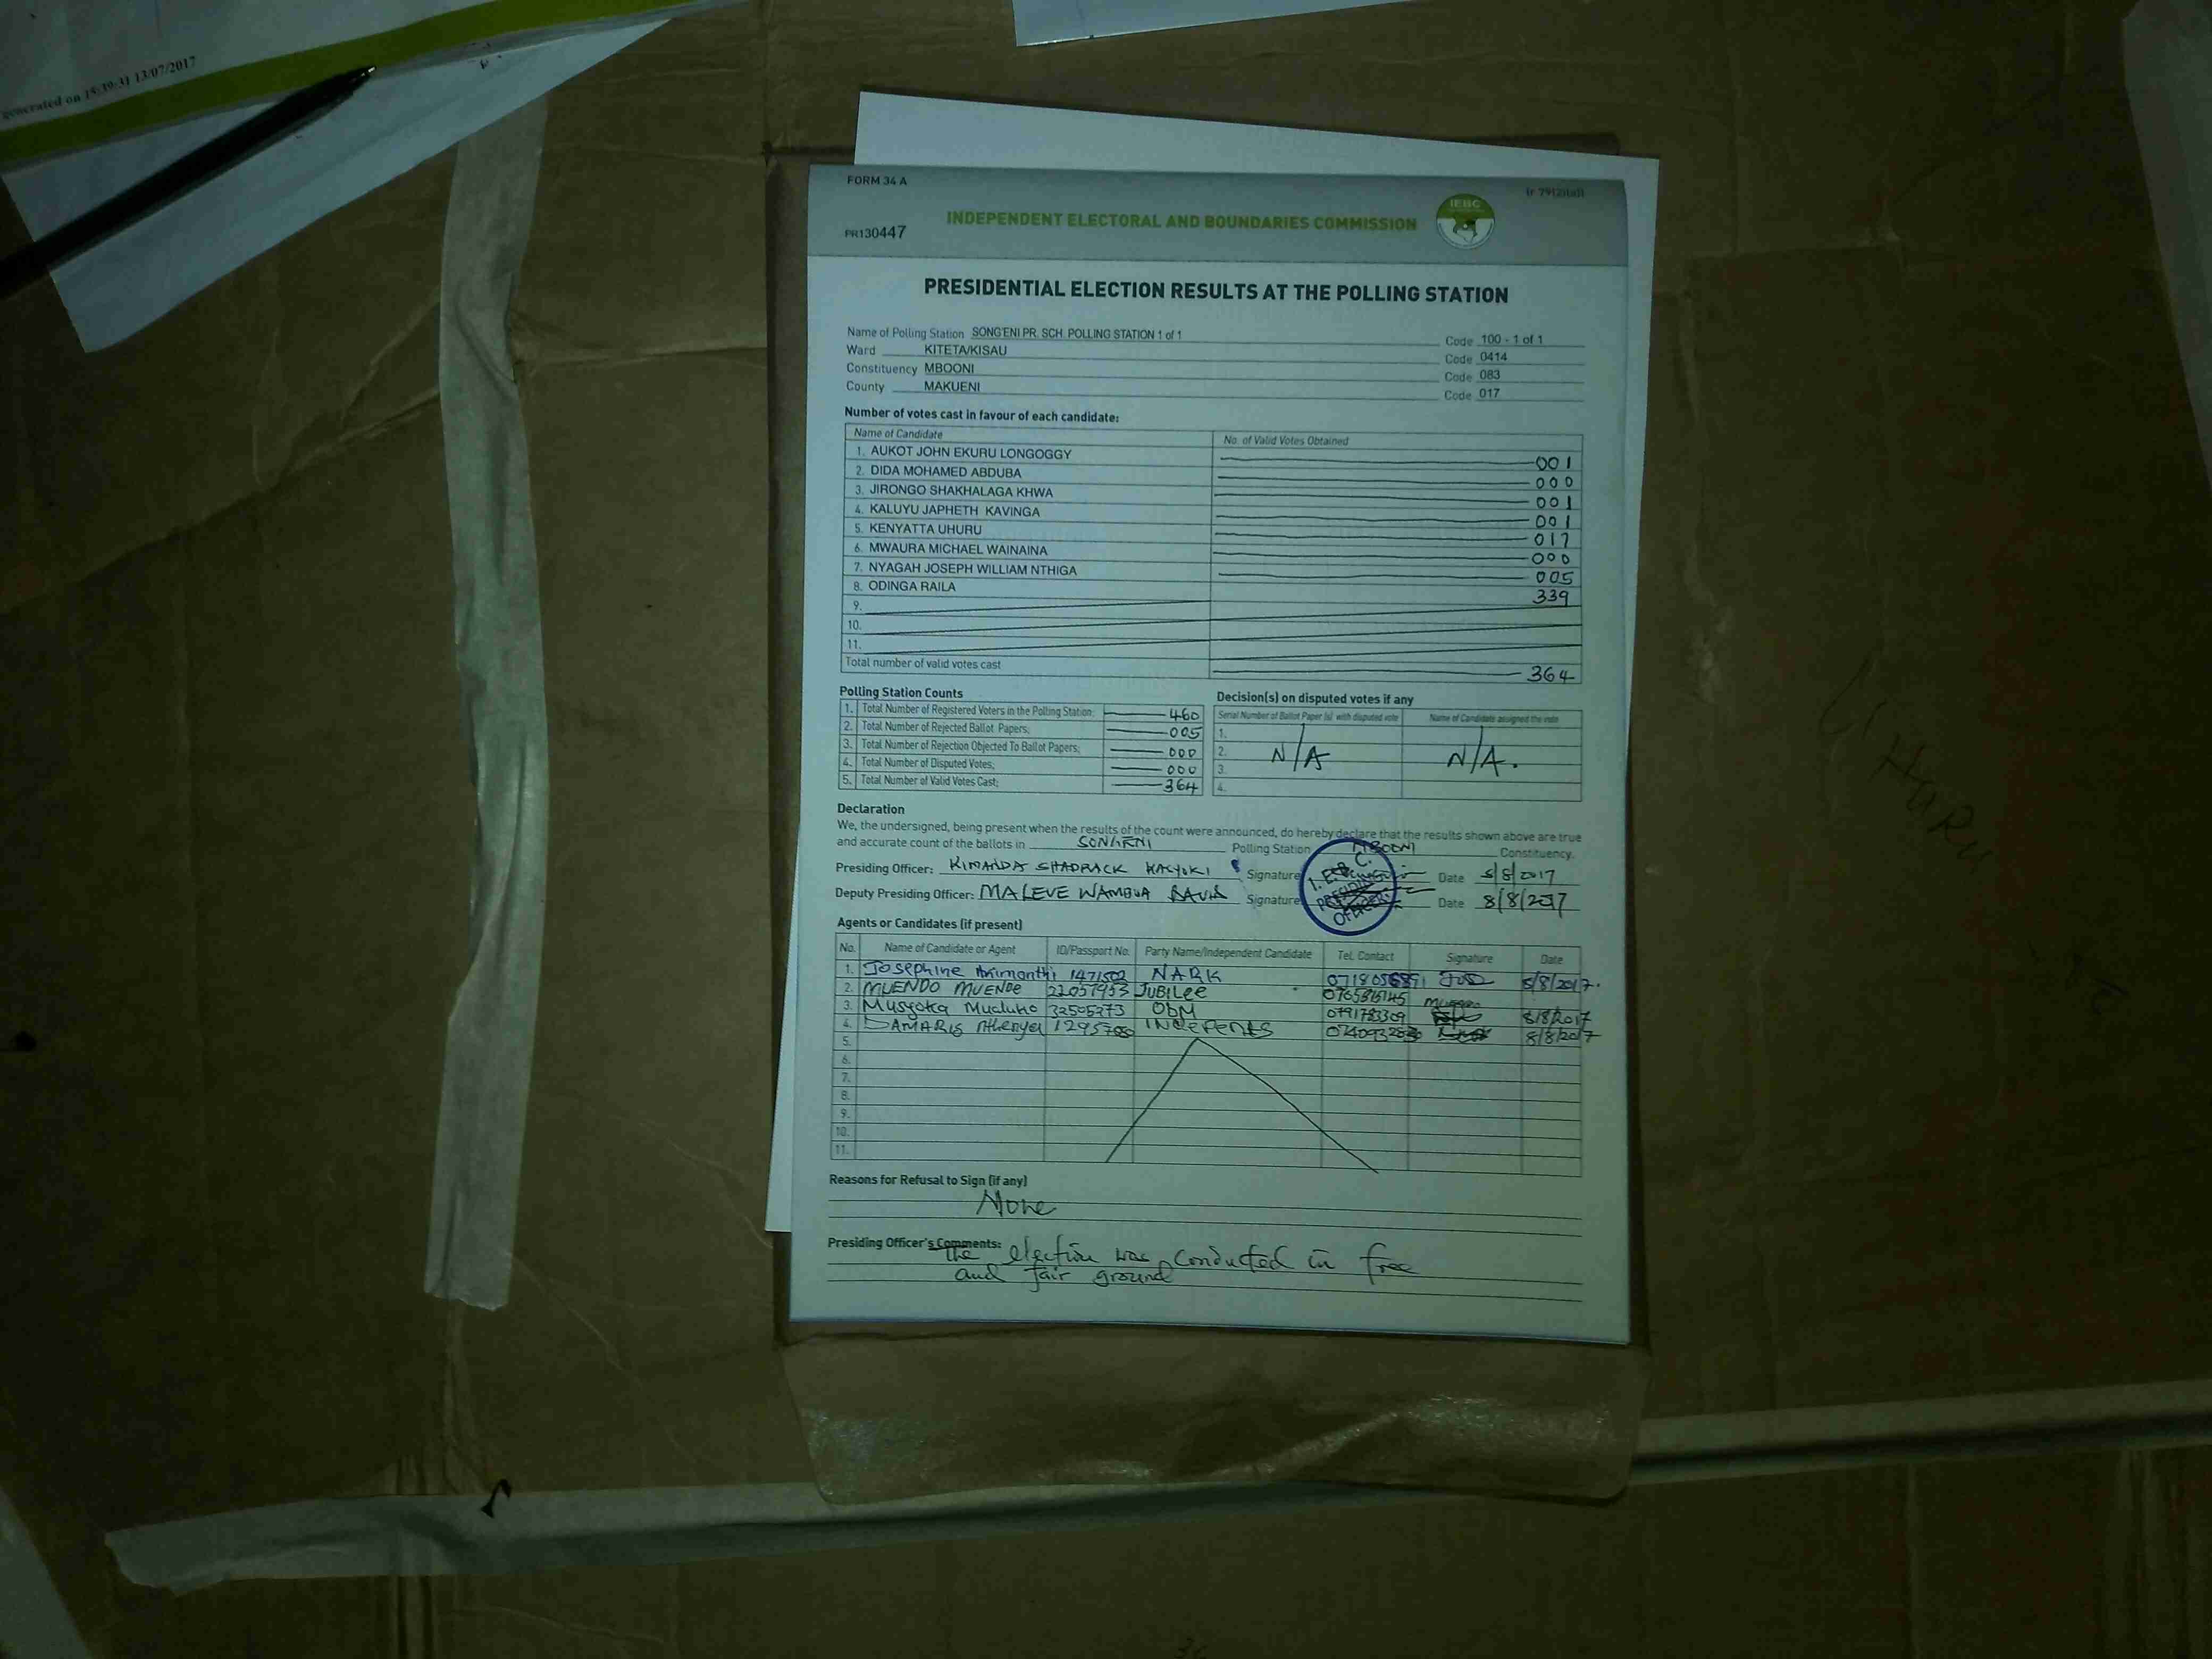 generated on 15:39:31 13/07/2017
FORM 34 A
PR130447
INDEPENDENT ELECTORAL AND BOUNDARIES COMMISSION
IEBC
PRESIDENTIAL ELECTION RESULTS AT THE POLLING STATION
Name of Polling Station SONG'ENI PR. SCH. POLLING STATION 1 of 1 Code 100 - 1 of 1
Ward KITETA/KISAU Code 0414
Constituency MBOONI Code 083
County MAKUENI Code 017
Number of votes cast in favour of each candidate:
Name of Candidate No. of Valid Votes Obtained
1. AUKOT JOHN EKURU LONGOGGY 001
2. DIDA MOHAMED ABDUBA 000
3. JIRONGO SHAKHALAGA KHWA 001
4. KALUYU JAPHETH KAVINGA 001
5. KENYATTA UHURU 017
6. MWAURA MICHAEL WAINAINA 000
7. NYAGAH JOSEPH WILLIAM NTHIGA 005
8. ODINGA RAILA 339
9.
10.
11.
Total number of valid votes cast 364
Polling Station Counts
1. Total Number of Registered Voters in the Polling Station; 460
2. Total Number of Rejected Ballot Papers; 005
3. Total Number of Rejection Objected To Ballot Papers; 000
4. Total Number of Disputed Votes; 000
5. Total Number of Valid Votes Cast; 364
Decision(s) on disputed votes if any
Serial Number of Ballot Paper (s) with disputed vote Name of Candidate assigned the vote
1.
2. N/A N/A.
3.
4.
Declaration
We, the undersigned, being present when the results of the count were announced, do hereby declare that the results shown above are true
and accurate count of the ballots in SONGENI Polling Station MBOONI Constituency.
Presiding Officer: KIMANDA SHADRACK KALYOKI Signature Date 8/8/2017
Deputy Presiding Officer: MALEVE WAMBUA DAVID Signature Date 8/8/2017
I.E.B.C. PRESIDING OFFICER
Agents or Candidates (if present)
No. Name of Candidate or Agent ID/Passport No. Party Name/Independent Candidate Tel. Contact Signature Date
1. Josephine NARK 8/8/2017.
2. MUENDO MUENDE 22051953 JUBILEE
3. Musyoka 32505273 ODM 0791783309 8/8/2017
4. DAMARIS Nthenya 8/8/2017
5.
6.
7.
8.
9.
10.
11.
Reasons for Refusal to Sign (if any)
None
Presiding Officer's Comments: The election was conducted in free
and fair ground